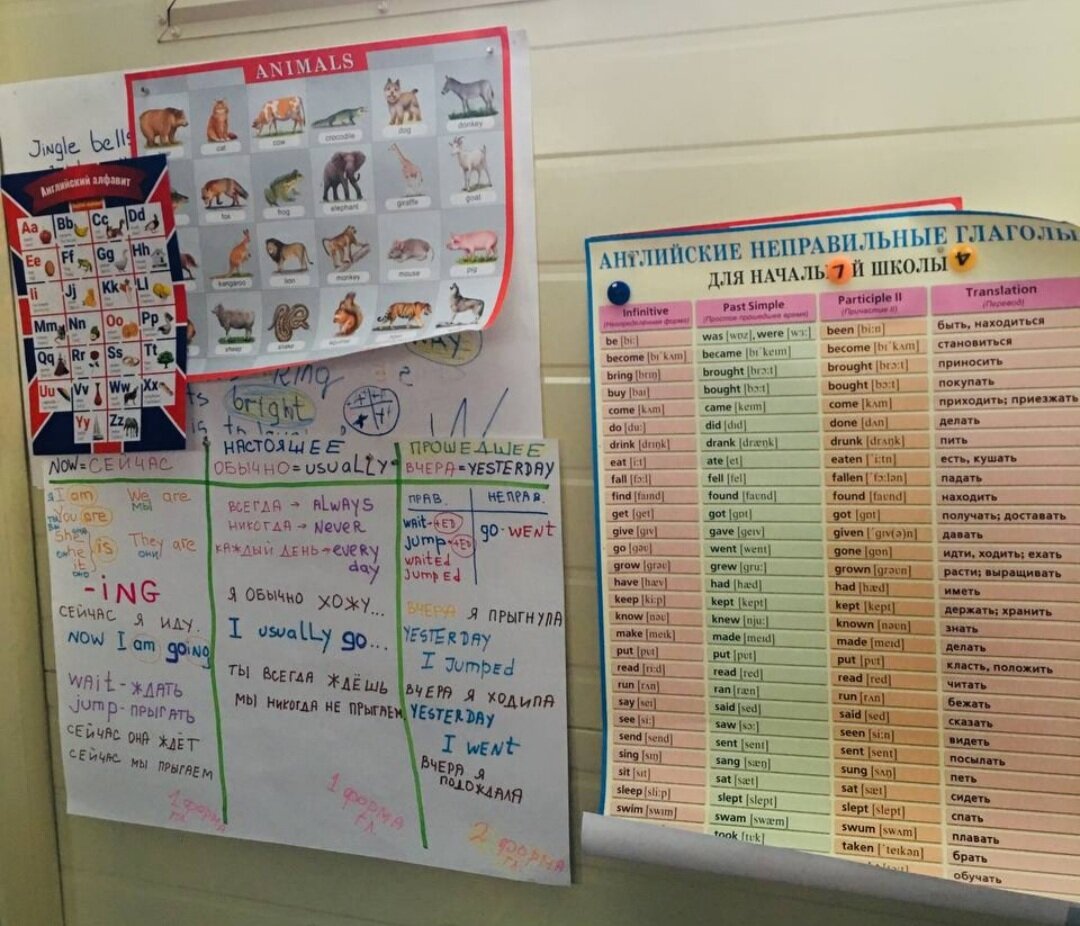 ANIMALS
cat
cow
crocodile
dog
donkey
fox
frog
elephant
giraffe
goat
kangaroo
lion
monkey
mouse
pig
sheep
snake
Jingle bells
Английский алфавит
Aa Bb Cc Dd
Ee Ff Gg Hh
Ii Jj Kk Ll
Mm Nn Oo Pp
Qq Rr Ss Tt
Uu Vv Ww Xx
Yy Zz
bright
NOW = СЕЙЧАС
I am We are
МЫ
you are
She
he is They are
it
-ING
СЕЙЧАС Я ИДУ.
NOW I am going
WAIT - ЖДАТЬ
jump - ПРЫГАТЬ
СЕЙЧАС ОНА ЖДЁТ
СЕЙЧАС МЫ ПРЫГАЕМ
1 форма
гл.
НАСТОЯЩЕЕ
ОБЫЧНО = USUALLY
ВСЕГДА → ALWAYS
НИКОГДА → NEVER
КАЖДЫЙ ДЕНЬ → every
day
Я ОБЫЧНО ХОЖУ...
I usually go...
ТЫ ВСЕГДА ЖДЁШЬ
МЫ НИКОГДА НЕ ПРЫГАЕМ
1 форма
гл.
ПРОШЕДШЕЕ
ВЧЕРА = YESTERDAY
ПРАВ. НЕПРАВ.
wait - +ED go - WENT
jump - +ED
WAITED
JUMPED
ВЧЕРА Я ПРЫГНУЛА
YESTERDAY
I Jumped
ВЧЕРА Я ХОДИЛА
YESTERDAY
I WENT
ВЧЕРА Я
ПОДОЖДАЛА
2 форма
гл.
АНГЛИЙСКИЕ НЕПРАВИЛЬНЫЕ ГЛАГОЛЫ
ДЛЯ НАЧАЛЬ Й ШКОЛЫ
7 4
Infinitive Past Simple Participle II Translation
(Неопределенная форма) (Простое прошедшее время) (Причастие II) (Перевод)
be [bi:] was [wɒz], were [wɜ:] been [bi:n] быть, находиться
become [bɪˈkʌm] became [bɪˈkeɪm] become [bɪˈkʌm] становиться
bring [brɪŋ] brought [brɔ:t] brought [brɔ:t] приносить
buy [baɪ] bought [bɔ:t] bought [bɔ:t] покупать
come [kʌm] came [keɪm] come [kʌm] приходить; приезжать
do [du:] did [dɪd] done [dʌn] делать
drink [drɪŋk] drank [dræŋk] drunk [drʌŋk] пить
eat [i:t] ate [et] eaten [ˈi:tn] есть, кушать
fall [fɔ:l] fell [fel] fallen [ˈfɔ:lən] падать
find [faɪnd] found [faʊnd] found [faʊnd] находить
get [get] got [gɒt] got [gɒt] получать; доставать
give [gɪv] gave [geɪv] given [ˈgɪv(ə)n] давать
go [gəʊ] went [went] gone [gɒn] идти, ходить; ехать
grow [grəʊ] grew [gru:] grown [grəʊn] расти; выращивать
have [hæv] had [hæd] had [hæd] иметь
keep [ki:p] kept [kept] kept [kept] держать; хранить
know [nəʊ] knew [nju:] known [nəʊn] знать
make [meɪk] made [meɪd] made [meɪd] делать
put [pʊt] put [pʊt] put [pʊt] класть, положить
read [ri:d] read [red] read [red] читать
run [rʌn] ran [ræn] run [rʌn] бежать
say [seɪ] said [sed] said [sed] сказать
see [si:] saw [sɔ:] seen [si:n] видеть
send [send] sent [sent] sent [sent] посылать
sing [sɪŋ] sang [sæŋ] sung [sʌŋ] петь
sit [sɪt] sat [sæt] sat [sæt] сидеть
sleep [sli:p] slept [slept] slept [slept] спать
swim [swɪm] swam [swæm] swum [swʌm] плавать
took [tʊk] taken [ˈteɪkən] брать
обучать